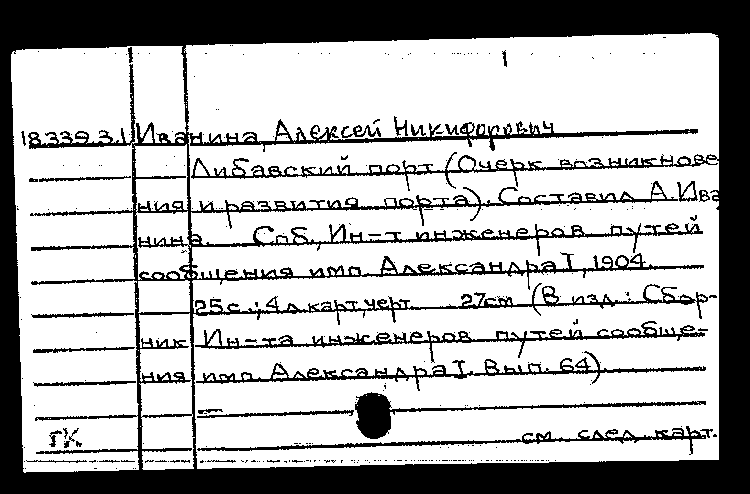 18.339.3.1 Иванина, Алексей Никифорович
Либавский порт (Очерк возникнове
ния и развития порта). Составил А. Ива
нина. Спб., Ин-т инженеров путей
сообщения имп. Александра I, 1904.
25 с.; 4 л. карт, черт. 27 см (В изд.: Сбор-
ник Ин-та инженеров путей сообще-
ния имп. Александра I. Вып. 64)
ГК
см. след. карт.